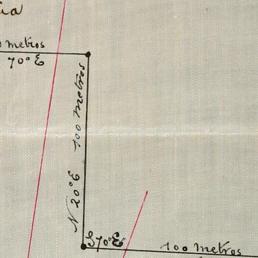 metros
70°E
N 20°E 100 metros
S 70°E
100 metros